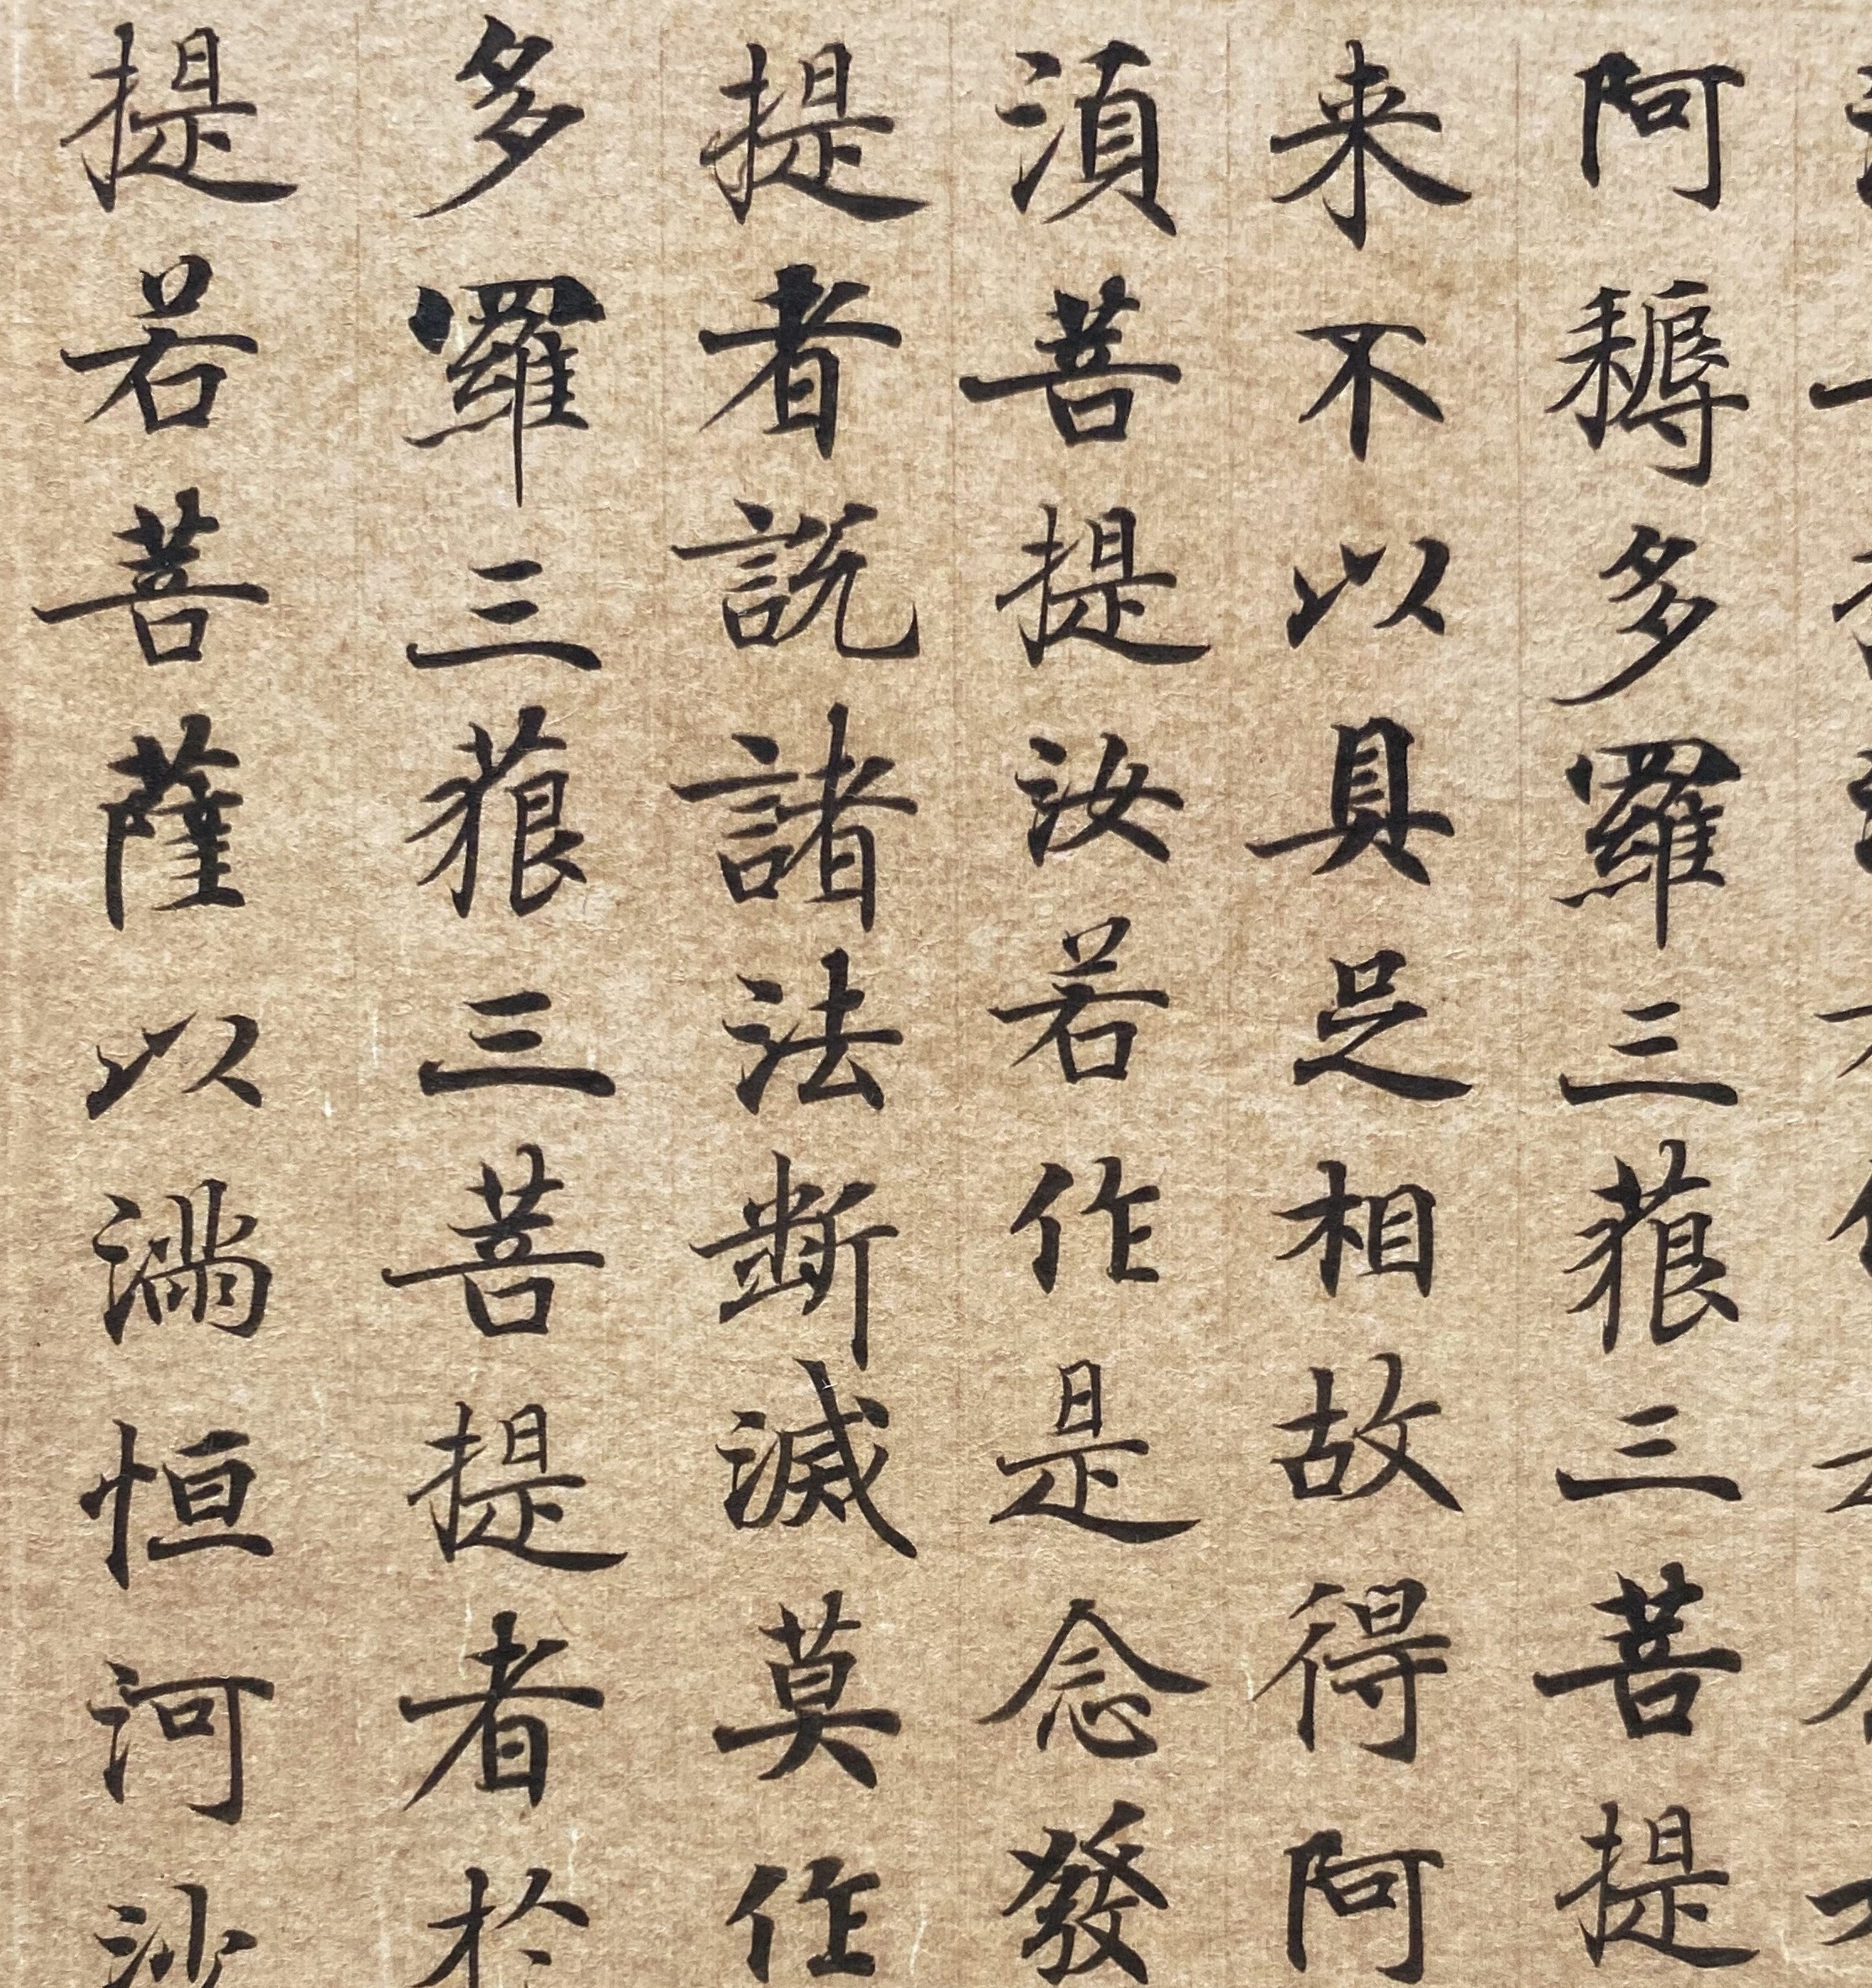 阿耨多羅三藐三菩提
来不以具足相故得阿
湏菩提汝若作是念發
提者説諸法斷滅莫作
多羅三藐三菩提者於
提若菩薩以滿恒河沙